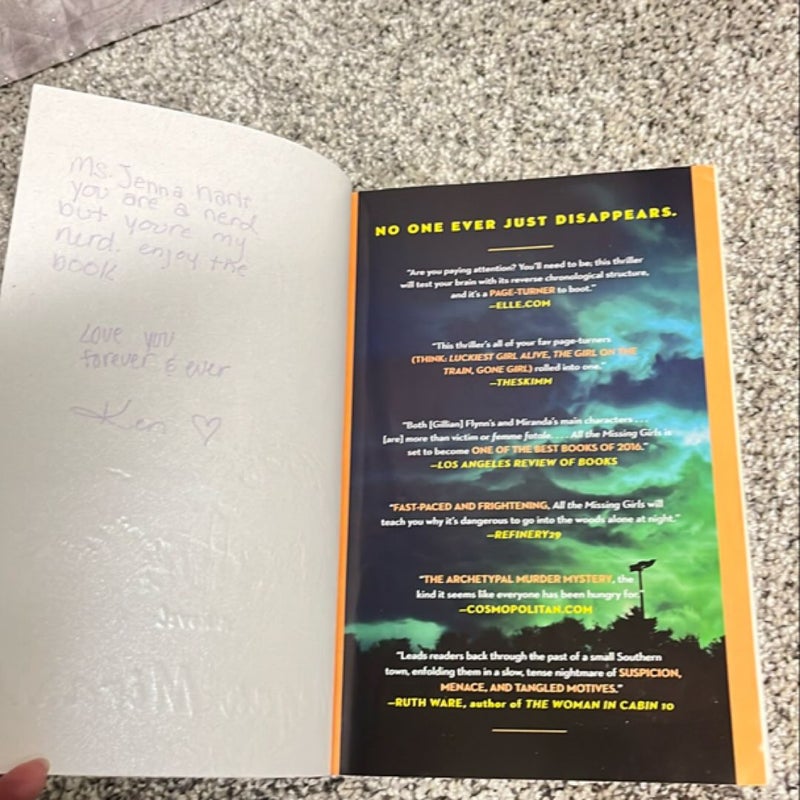 Ms. Jenna
you are a nerd
but youre my
nerd. enjoy the
book
Love you
forever & ever
Ken ♡
NO ONE EVER JUST DISAPPEARS.
"Are you paying attention? You'll need to be; this thriller
will test your brain with its reverse chronological structure,
and it's a PAGE-TURNER to boot."
—ELLE.COM
"This thriller's all of your fav page-turners
(THINK: LUCKIEST GIRL ALIVE, THE GIRL ON THE
TRAIN, GONE GIRL) rolled into one."
—THESKIMM
"Both [Gillian] Flynn's and Miranda's main characters . . .
[are] more than victim or femme fatale. . . . All the Missing Girls is
set to become ONE OF THE BEST BOOKS OF 2016."
—LOS ANGELES REVIEW OF BOOKS
"FAST-PACED AND FRIGHTENING, All the Missing Girls will
teach you why it's dangerous to go into the woods alone at night."
—REFINERY29
"THE ARCHETYPAL MURDER MYSTERY, the
kind it seems like everyone has been hungry for."
—COSMOPOLITAN.COM
"Leads readers back through the past of a small Southern
town, enfolding them in a slow, tense nightmare of SUSPICION,
MENACE, AND TANGLED MOTIVES."
—RUTH WARE, author of THE WOMAN IN CABIN 10